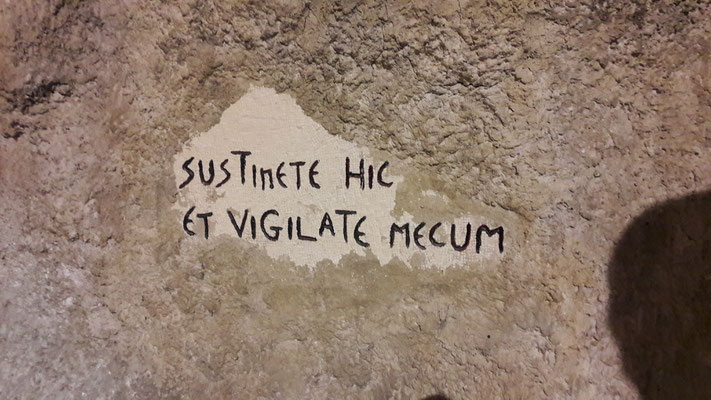 SUSTINETE HIC
ET VIGILATE MECUM